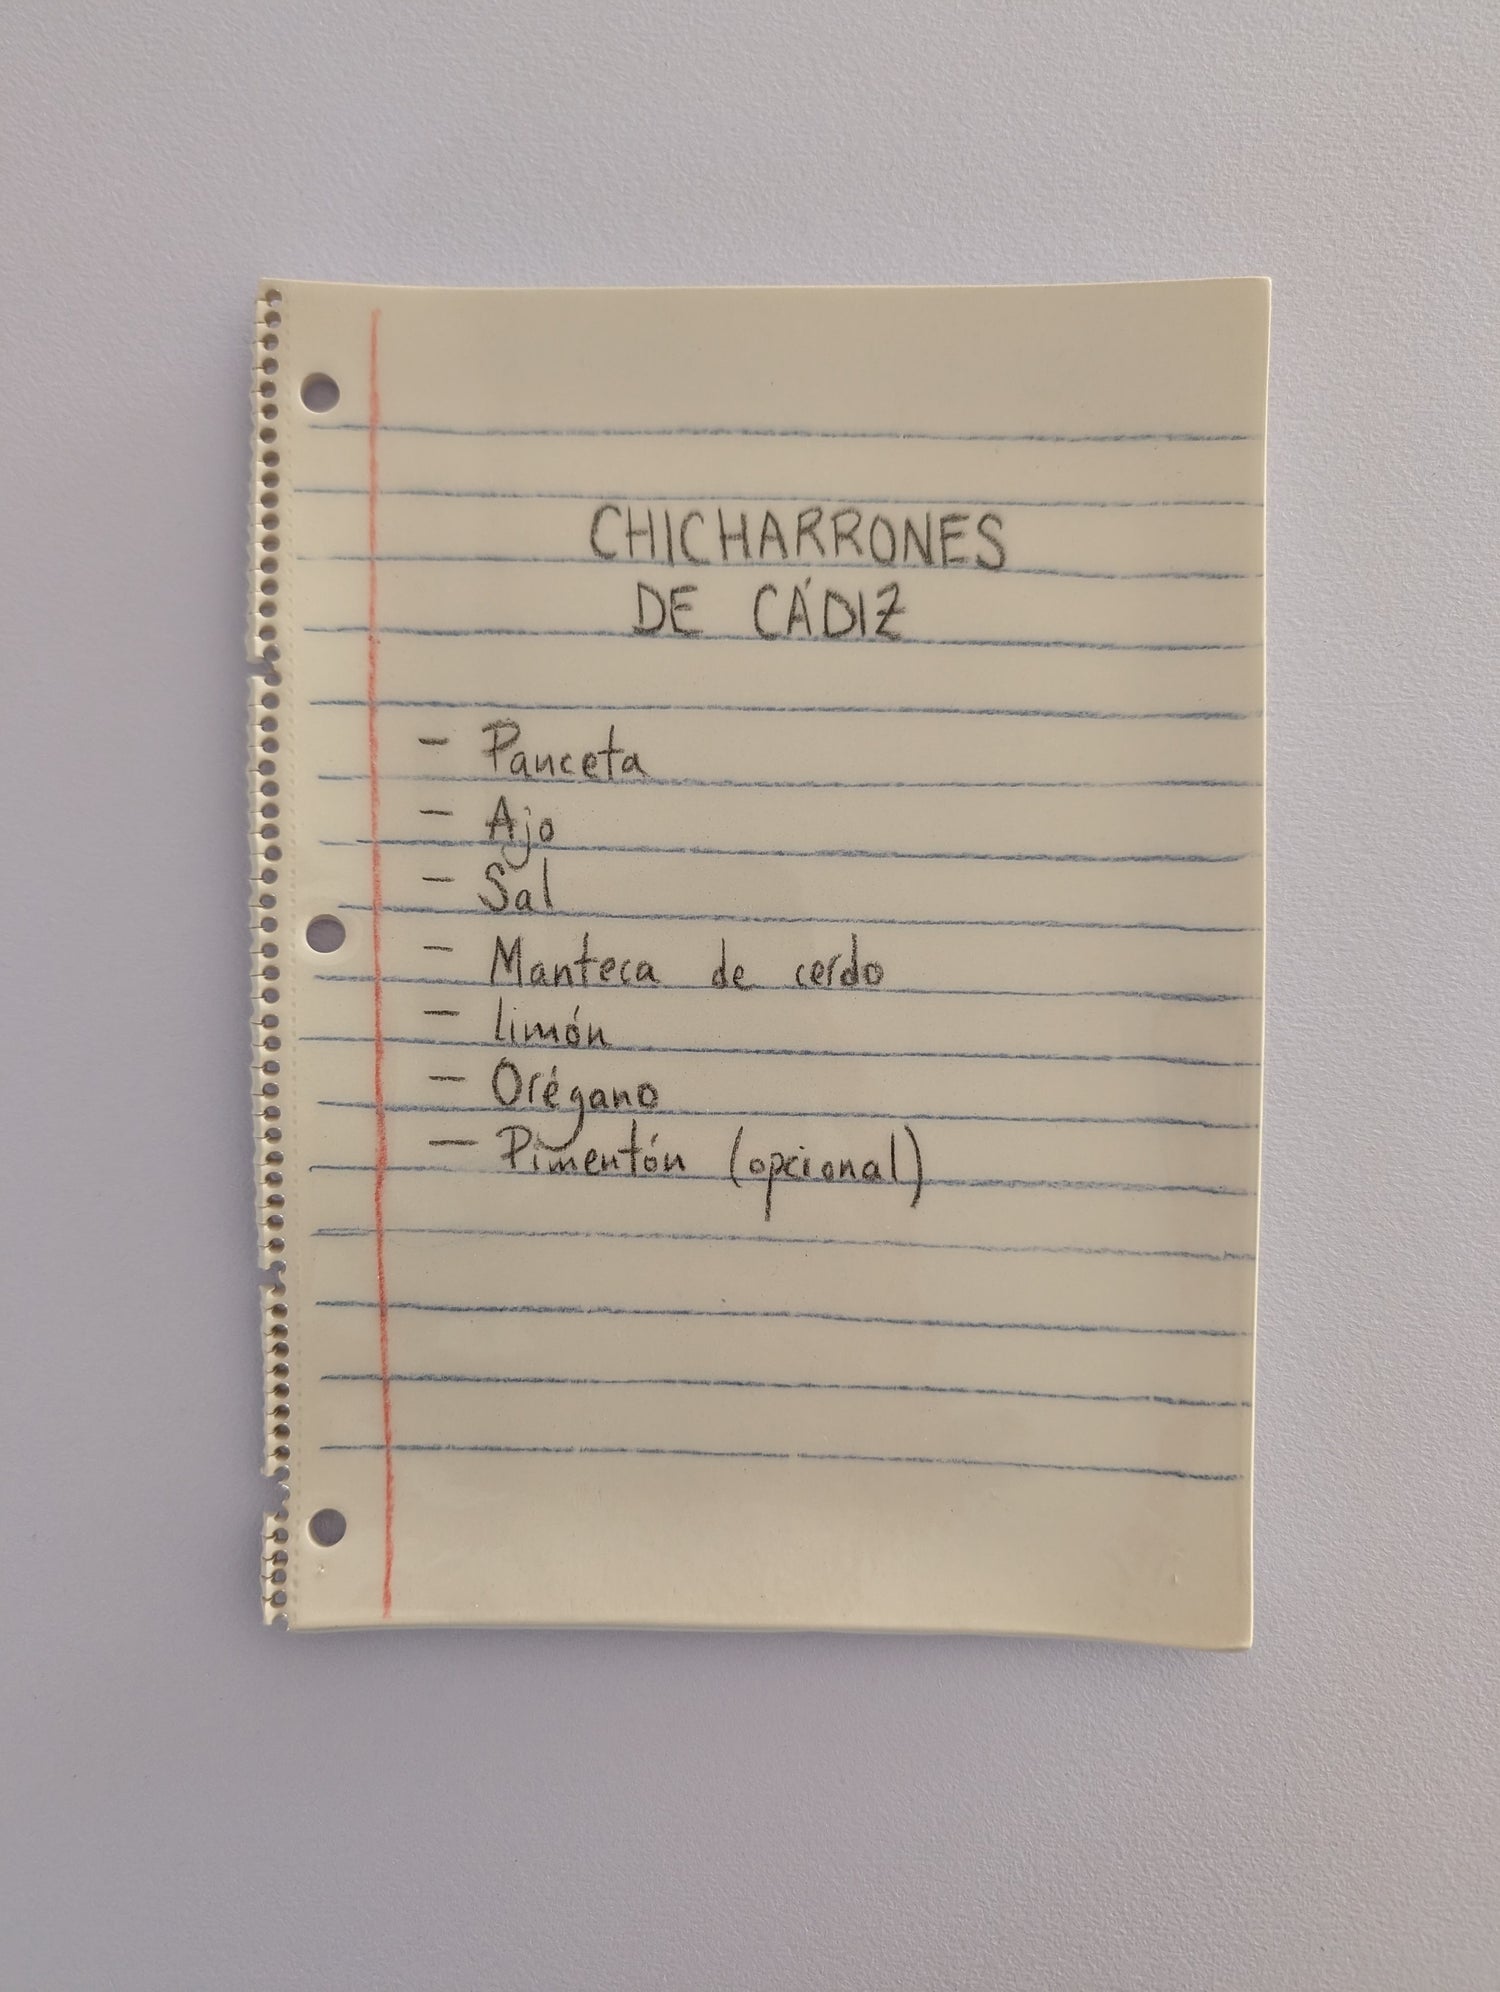 CHICHARRONES
DE CÁDIZ
- Panceta
- Ajo
- Sal
- Manteca de cerdo
- limón
- Orégano
- Pimentón (opcional)